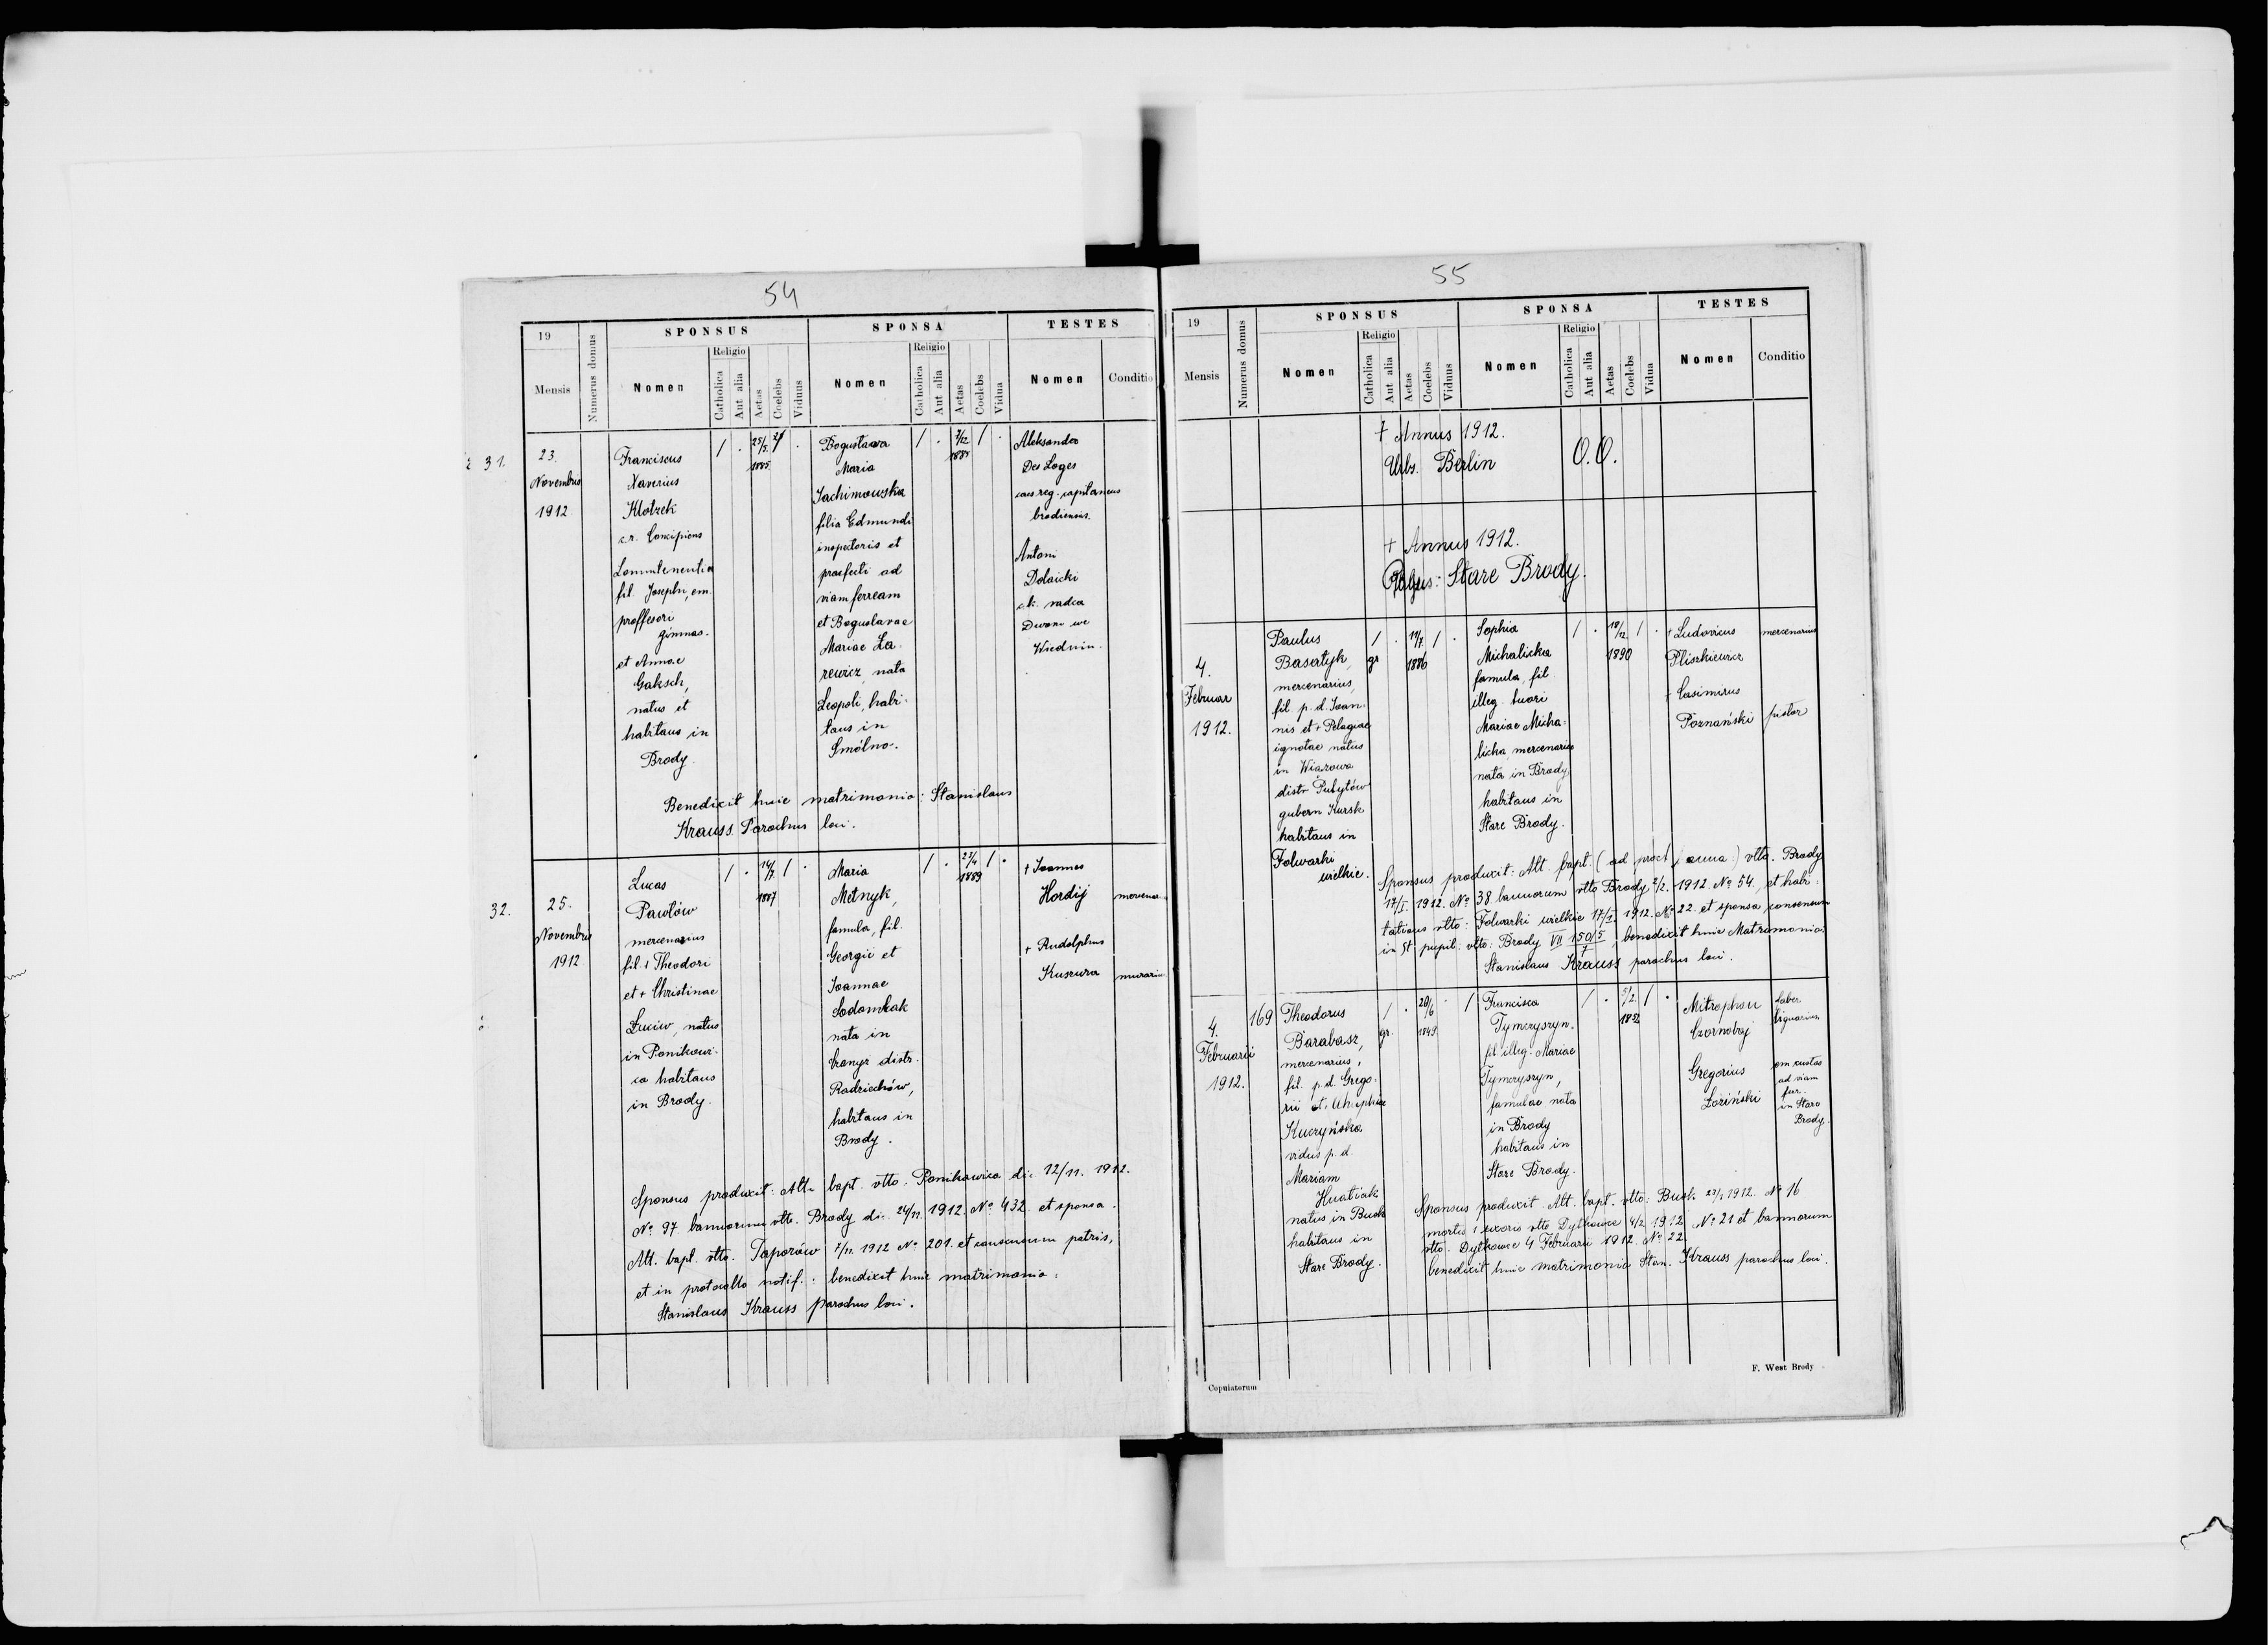 54
19
SPONSUS
SPONSA
TESTES
Mensis
Numerus domus
Nomen
Religio
Catholica
Aut alia
Aetas
Coelebs
Viduus
Nomen
Religio
Catholica
Aut alia
Aetas
Coelebs
Vidua
Nomen
Conditio
31.
23.
Novembris
1912
Franciscus
Xaverius
Klotzek
c.r. Concipiens
fil. Josephi, em.
proffesori
gimnas.
et Annae
Gaksch,
natus et
habitans in
Brody.
1 . 25/5 1 .
1885
Bogusława
Maria
Jachimowska
filia Edmundi
inspectoris et
praefecti ad
viam ferream
et Boguslavae
Mariae La-
rewicz, nata
Leopoli, habi-
tans in
Smólno.
1 . 7/12 1 .
Aleksander
Des Loges
caes reg. capitaneus
brodiensis.
Antoni
Dolaicki
c.k. radca
Dworu we
Wiedniu.
Benedixit huic matrimonio: Stanislaus
Krauss Parochus loci.
32.
25.
Novembris
1912
Lucas
Pawłów
mercenarius
fil. + Theodori
et + Christinae
Łuciw, natus
in Ponikowi-
ca habitans
in Brody.
1 . 14/7 1 .
1887
Maria
Metnyk,
famula, fil.
Georgii et
Joannae
Sodomlak
nata in
Czanyz distr.
Radziechów,
habitans in
Brody.
1 . 23/4 1 .
1889
+ Joannes
Hordij
mercenar.
+ Rudolphus
Kuszura
murariu
Sponsus produxit: Alt. bapt. dtto. Ponikowica di: 12/11. 1912.
№ 97. bannorum dtto. Brody di: 24/11. 1912. № 432 et sponsa.
Alt. bapt. dtto. Toporów 7/11. 1912 № 201. et consensum patris,
et in protocollo notif.: benedixit huic matrimonio:
Stanislaus Krauss parochus loci.
55
19
SPONSUS
SPONSA
TESTES
Mensis
Numerus domus
Nomen
Religio
Catholica
Aut alia
Aetas
Coelebs
Viduus
Nomen
Religio
Catholica
Aut alia
Aetas
Coelebs
Vidua
Nomen
Conditio
+ Annus 1912.
Urbs. Berlin O.O.
+ Annus 1912.
Pagus: Stare Brody.
4.
Februar
1912.
Paulus
Basatyk,
mercenarius,
fil. p.d. Joan-
nis et + Pelagiae
ignotae natus
in Wiazowa
distr Putytów
gubern Kursk
habitans in
Folwarki
wielkie.
1 . 19/7. 1 .
gr 1886
Sophia
Michalicka
famula, fil.
illeg. tuori
Mariae Micha-
licka, mercenariae
nata in Brody
habitans in
Stare Brody.
1 . 18/12 1 .
1890
+ Ludovicus
Pliszkiewicz
mercenarius
+ Casimirus
Poznański
pistor
Sponsus produxit: Alt. bapt. dtto. Brody
17/I. 1912. № 38 bannorum dtto Brody 2/2. 1912. № 54., et habi-
tationis dtto: Folwarki wielkie 17/I 1912. № 22. et sponsa consensum
in St pupil: dtto: Brody VII 150/5, benedixit huic Matrimonio.
Stanislaus Krauss parochus loci.
4.
Februarii
1912.
169
Theodorus
Barabasz,
mercenarius,
fil. p.d. Grego-
rii et
Kuczyńska
vidus p.d.
Mariam
Huatiak
natus in Busk
habitans in
Stare Brody.
1 . 20/6 . 1
gr. 1849
Francisca
Tymczyszyn.
fil illeg: Mariae
Tymczyszyn,
famulae nata
in Brody
habitans in
Stare Brody.
1 . 5/2. 1 .
1852
Mitrophan
Czornobyj
faber
lignarius
Gregorius
Łoziński
em custos
ad viam
fer.
in Stare
Brody.
Sponsus produxit Alt. bapt. dtto: Busk 1912. № 16
mortis I uxoris dtto Dytkowce 4/2 1912 № 21 et bannorum
dtto. Dytkowce 4 Februarii 1912. № 22
benedixit huic matrimonio Stan. Krauss parochus loci.
Copulatorum
F. West Brody